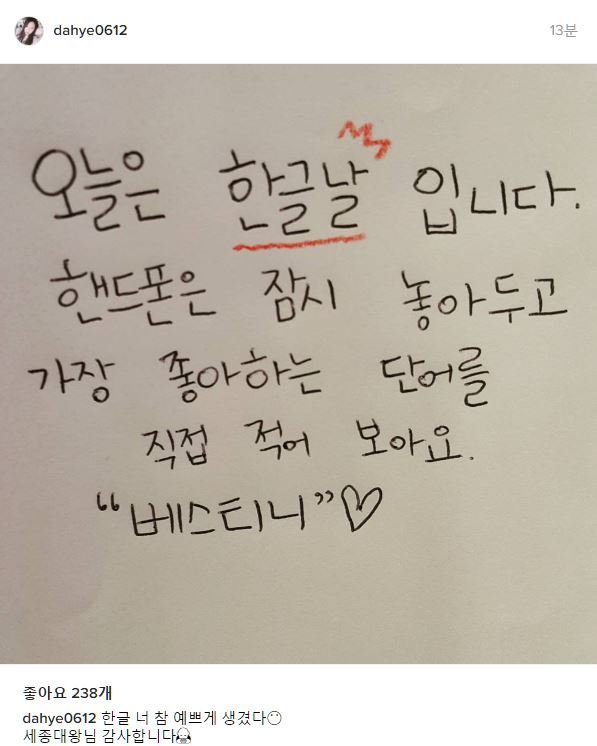 dahye0612
13분
오늘은 한글날 입니다.
핸드폰은 잠시 놓아두고
가장 좋아하는 단어를
직접 적어 보아요.
“베스티니”♡
좋아요 238개
dahye0612 한글 너 참 예쁘게 생겼다😶
세종대왕님 감사합니다